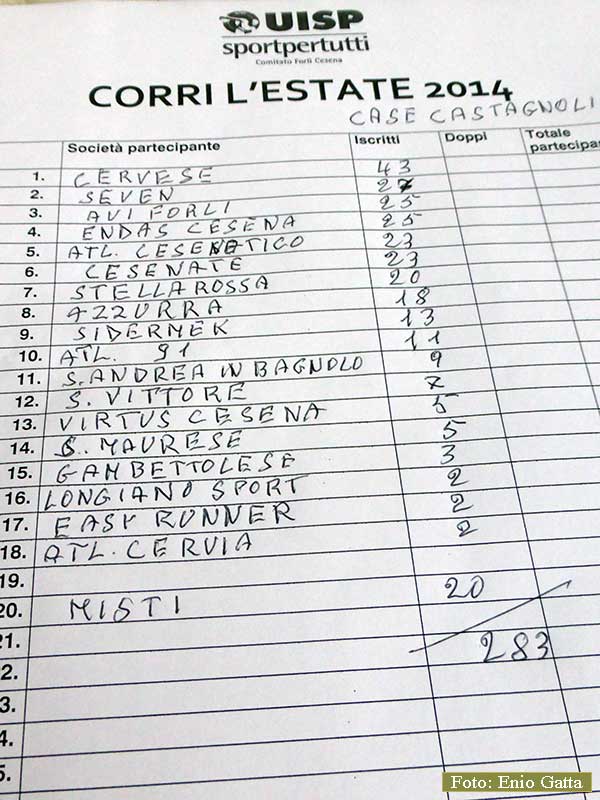 UISP
sportpertutti
Comitato Forlì Cesena
CORRI L'ESTATE 2014
CASE CASTAGNOLI
Società partecipante Iscritti Doppi Totale
partecipan
1. CERVESE 43
2. SEVEN 27
3. AVI FORLI 25
4. ENDAS CESENA 25
5. ATL. CESENATICO 23
6. CESENATE 23
7. STELLA ROSSA 20
8. AZZURRA 18
9. SIDERMEK 13
10. ATL. 91 11
11. S. ANDREA IN BAGNOLO 9
12. S. VITTORE 7
13. VIRTUS CESENA 5
14. S. MAURESE 5
15. GAMBETTOLESE 3
16. LONGIANO SPORT 2
17. EASY RUNNER 2
18. ATL. CERVIA 2
19.
20. MISTI 20
21. 283
2.
3.
4.
5.
Foto: Enio Gatta